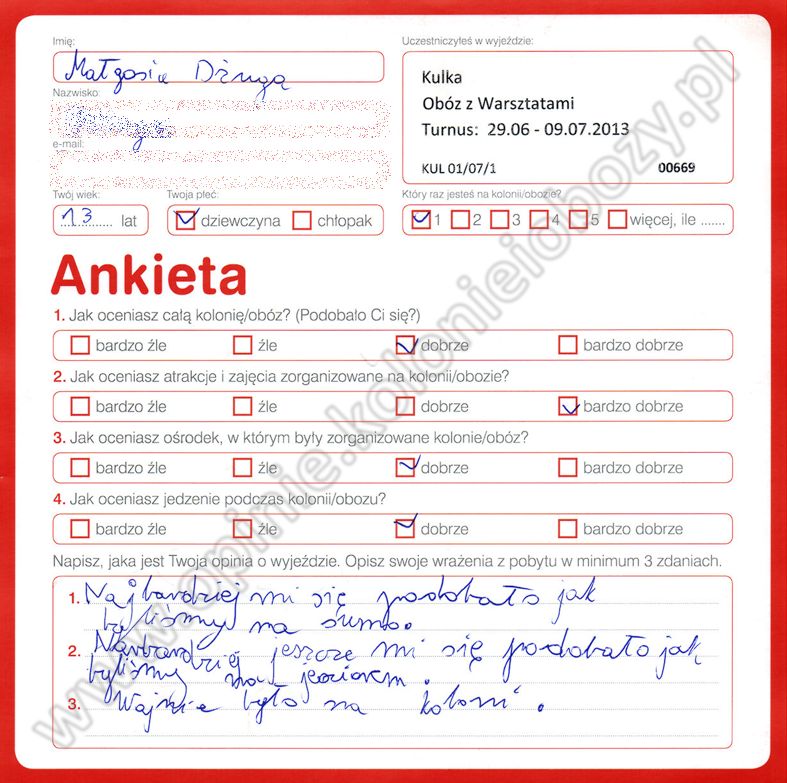 Imię:
Małgosia Dżuga
Nazwisko:
e-mail:
Twój wiek:
13 lat
Twoja płeć:
dziewczyna chłopak
Uczestniczyłeś w wyjeździe:
Kulka
Obóz z Warsztatami
Turnus: 29.06 - 09.07.2013
KUL 01/07/1 00669
Który raz jesteś na kolonii/obozie?
1 2 3 4 5 więcej, ile .......
Ankieta
1. Jak oceniasz całą kolonię/obóz? (Podobało Ci się?)
bardzo źle źle dobrze bardzo dobrze
2. Jak oceniasz atrakcje i zajęcia zorganizowane na kolonii/obozie?
bardzo źle źle dobrze bardzo dobrze
3. Jak oceniasz ośrodek, w którym były zorganizowane kolonie/obóz?
bardzo źle źle dobrze bardzo dobrze
4. Jak oceniasz jedzenie podczas kolonii/obozu?
bardzo źle źle dobrze bardzo dobrze
Napisz, jaka jest Twoja opinia o wyjeździe. Opisz swoje wrażenia z pobytu w minimum 3 zdaniach.
1. Najbardziej mi się podobało jak
byliśmy na sumo.
2. Najbardziej jeszcze mi się podobało jak
byliśmy nad jeziorem.
3. Fajnie było na koloni.
www.opinie.kolonieiobozy.pl